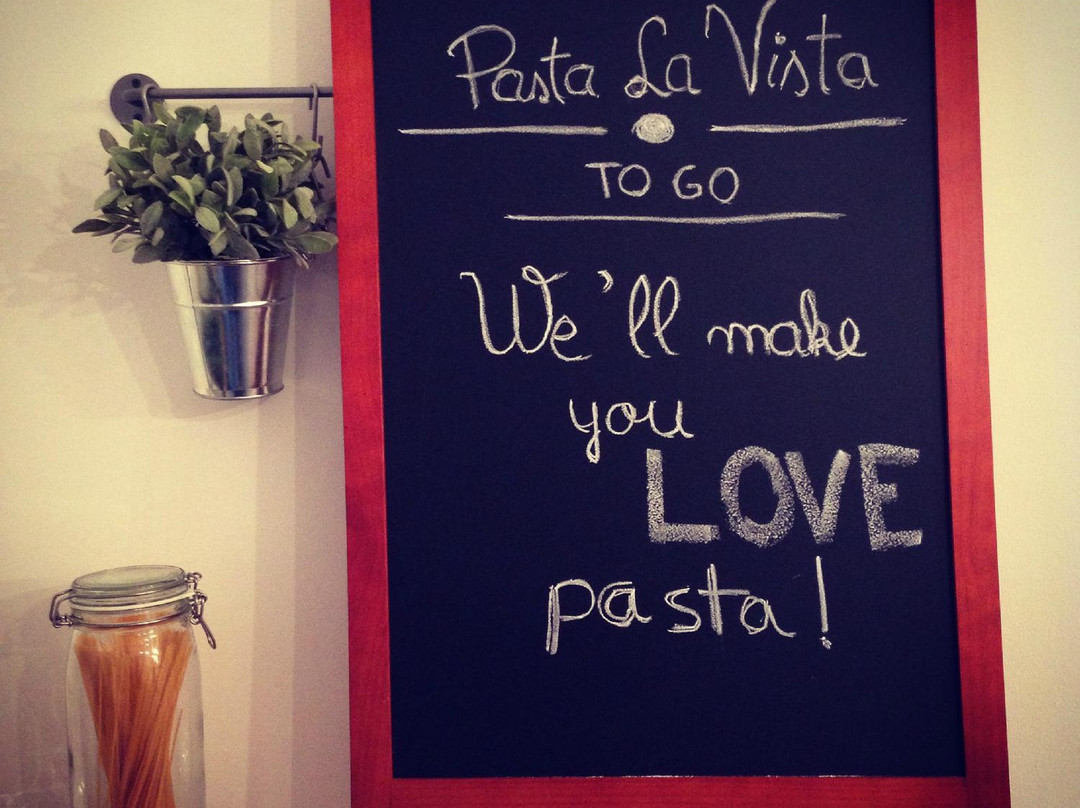 Pasta La Vista
TO GO
We'll make
you
LOVE
pasta!